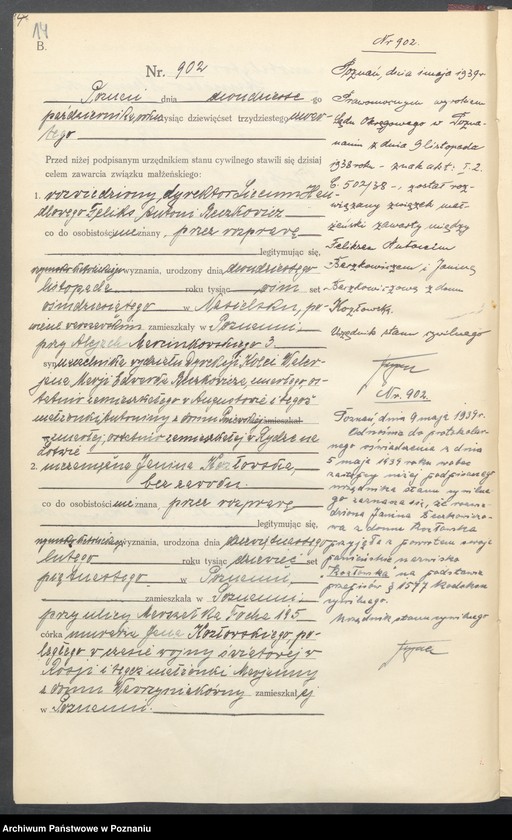 14
B.
Nr. 902
Poznań dnia dwudziestego
października roku tysiąc dziewięćset trzydziestego
tego
Przed niżej podpisanym urzędnikiem stanu cywilnego stawili się dzisiaj
celem zawarcia związku małżeńskiego:
1. rozwiedziony, dyrektor Liceum Han
dlowego Feliks Antoni Beczkowicz
co do osobistości znany, przez rozprawę
legitymując się,
wyznania, urodzony dnia dwudziestego
listopada roku tysiąc osm set
osimdziesiątego w Nasielsku, po-
zamieszkały w Poznaniu
przy Alejach Marcinkowskiego 3
syn urzędnika wydziału Dyrekcji Kolei
Edwarda Beczkowicza, zmarłego os-
tatnio zamieszkałego w Augustowie i tegoż
małżonki z domu zamieszkał
zmarłej, ostatnio zamieszkałej w Rydze na
Łotwie
2. niezamężna Janina Kozłowska,
bez zawodu
co do osobistości znana, przez rozprawę
legitymując się,
wyznania, urodzona dnia
lutego roku tysiąc dziewięć set
piątego w Poznaniu
zamieszkała w Poznaniu
przy ulicy Marszałka Focha 185
córka murarza Jana Kozłowskiego po-
ległego w czasie wojny światowej w
Rosji i tegoż małżonki Marjanny
z domu Wawrzyniakówny zamieszkałej
w Poznaniu.
Nr 902.
Poznań dnia 1 maja 1939 r.
Prawomocnym wyrokiem
Sądu Okręgowego w Pozna-
niu z dnia 9 listopada
1938 roku - znak akt: I. 2.
C. 502/38 -, został roz-
wiązany związek mał-
żeński zawarty między
Feliksem Antonim
Beczkowiczem i Janiną
Beczkowiczową z domu
Kozłowską.
Urzędnik stanu cywilnego
Nr. 902.
Poznań dnia 9 maja 1939 r.
Odnośnie do protokolar-
nego oświadczenia z dnia
5 maja 1939 roku wobec
niżej podpisanego
urzędnika stanu cywilne-
go zeznaje się, że rozwie-
dziona Janina Beczkowiczo-
wa z domu Kozłowska
przyjęła z powrotem swoje
panieńskie nazwisko
Kozłowska na podstawie
przepisów § 1577 Kodeksu
cywilnego.
Urzędnik stanu cywilnego
Archiwum Państwowe w Poznaniu